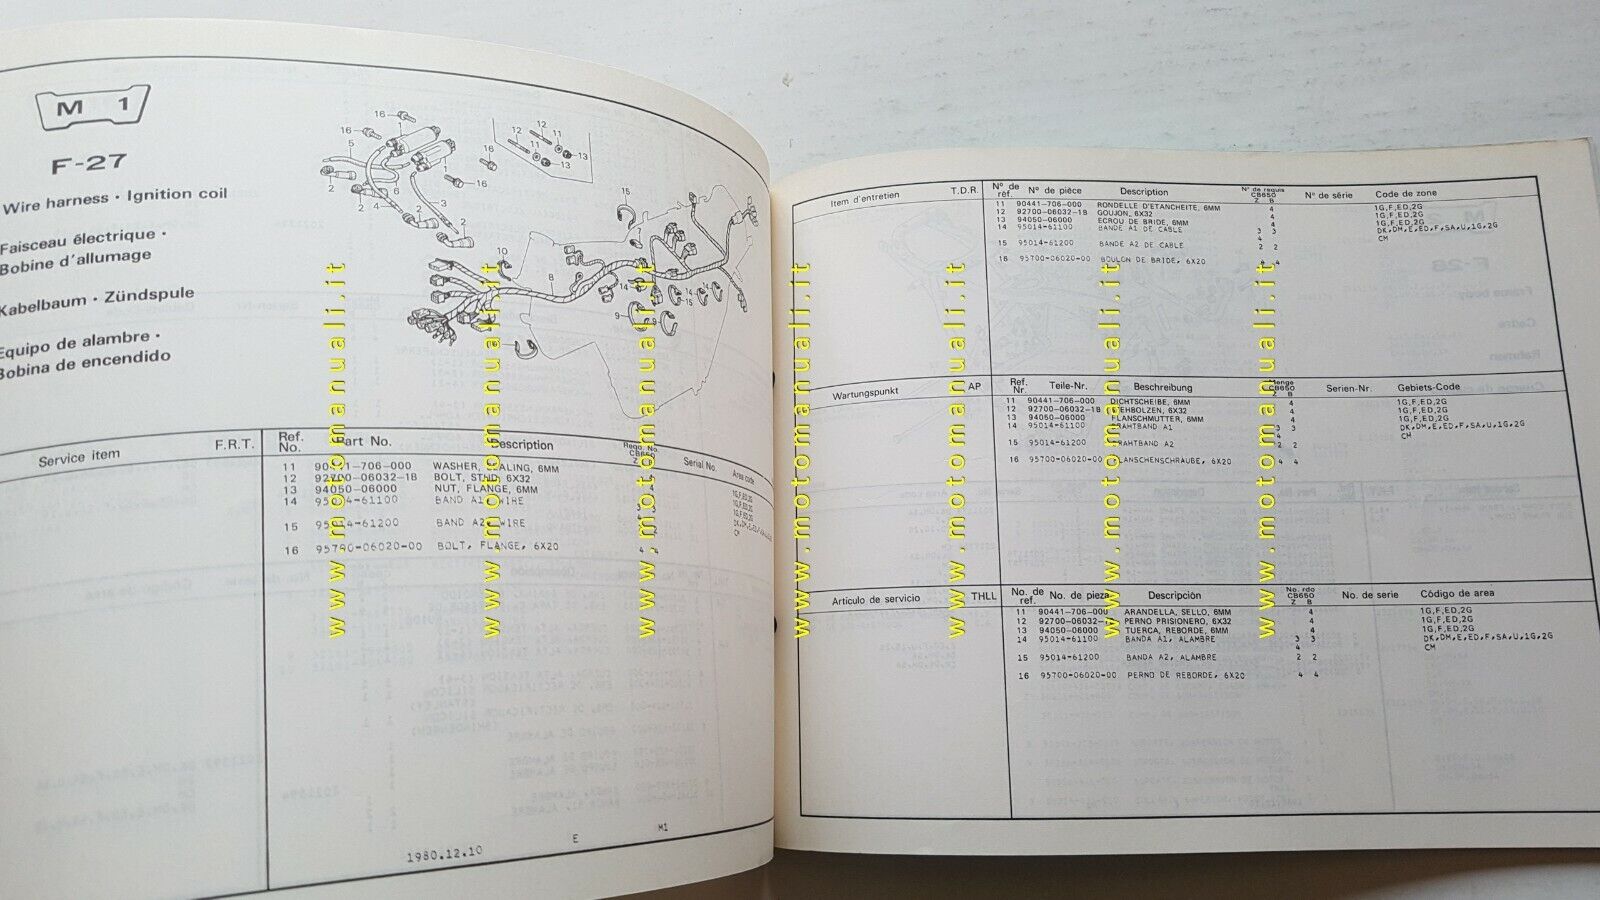 M 1
F-27
Wire harness · Ignition coil
Faisceau électrique ·
Bobine d'allumage
Kabelbaum · Zündspule
Equipo de alambre ·
Bobina de encendido
Service item F.R.T. Ref. No. Part No. Description Reqd. No. CB650 Z B Serial No. Area code
11 90441-706-000 WASHER, SEALING, 6MM 4 1G,F,ED,2G
12 92700-06032-1B BOLT, STUD, 6X32 4 1G,F,ED,2G
13 94050-06000 NUT, FLANGE, 6MM 4 1G,F,ED,2G
14 95014-61100 BAND A1, WIRE 3 3
CM
15 95014-61200 BAND A2, WIRE 2 2
16 95700-06020-00 BOLT, FLANGE, 6X20 4 4
1980.12.10 E M1
Item d'entretien T.D.R. N° de réf. N° de pièce Description N° de requis CB650 Z B N° de série Code de zone
11 90441-706-000 RONDELLE D'ETANCHEITE, 6MM 4 1G,F,ED,2G
12 92700-06032-1B GOUJON, 6X32 4 1G,F,ED,2G
13 94050-06000 ECROU DE BRIDE, 6MM 4 1G,F,ED,2G
14 95014-61100 BANDE A1 DE CABLE 3 3 DK,DM,E,ED,F,SA,U,1G,2G
4 CM
15 95014-61200 BANDE A2 DE CABLE 2 2
16 95700-06020-00 BOULON DE BRIDE, 6X20 4 4
Wartungspunkt AP Ref. Nr. Teile-Nr. Beschreibung Menge CB650 Z B Serien-Nr. Gebiets-Code
11 90441-706-000 DICHTSCHEIBE, 6MM 4 1G,F,ED,2G
12 92700-06032-1B STEHBOLZEN, 6X32 4 1G,F,ED,2G
13 94050-06000 FLANSCHMUTTER, 6MM 4 1G,F,ED,2G
14 95014-61100 DRAHTBAND A1 3 3 DK,DM,E,ED,F,SA,U,1G,2G
4 CM
15 95014-61200 DRAHTBAND A2 2 2
16 95700-06020-00 FLANSCHENSCHRAUBE, 6X20 4 4
Articulo de servicio THLL No. de ref. No. de pieza Descripción No. rdo CB650 Z B No. de serie Código de area
11 90441-706-000 ARANDELLA, SELLO, 6MM 4 1G,F,ED,2G
12 92700-06032-1B PERNO PRISIONERO, 6X32 4 1G,F,ED,2G
13 94050-06000 TUERCA, REBORDE, 6MM 4 1G,F,ED,2G
14 95014-61100 BANDA A1, ALAMBRE 3 3 DK,DM,E,ED,F,SA,U,1G,2G
4 CM
15 95014-61200 BANDA A2, ALAMBRE 2 2
16 95700-06020-00 PERNO DE REBORDE, 6X20 4 4
www.motomanuali.it
www.motomanuali.it
www.motomanuali.it
www.motomanuali.it
www.motomanuali.it
www.motomanuali.it
www.motomanuali.it